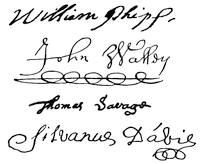 William Phipps.
John Walley
Thomas Savage
Silvanus Davis